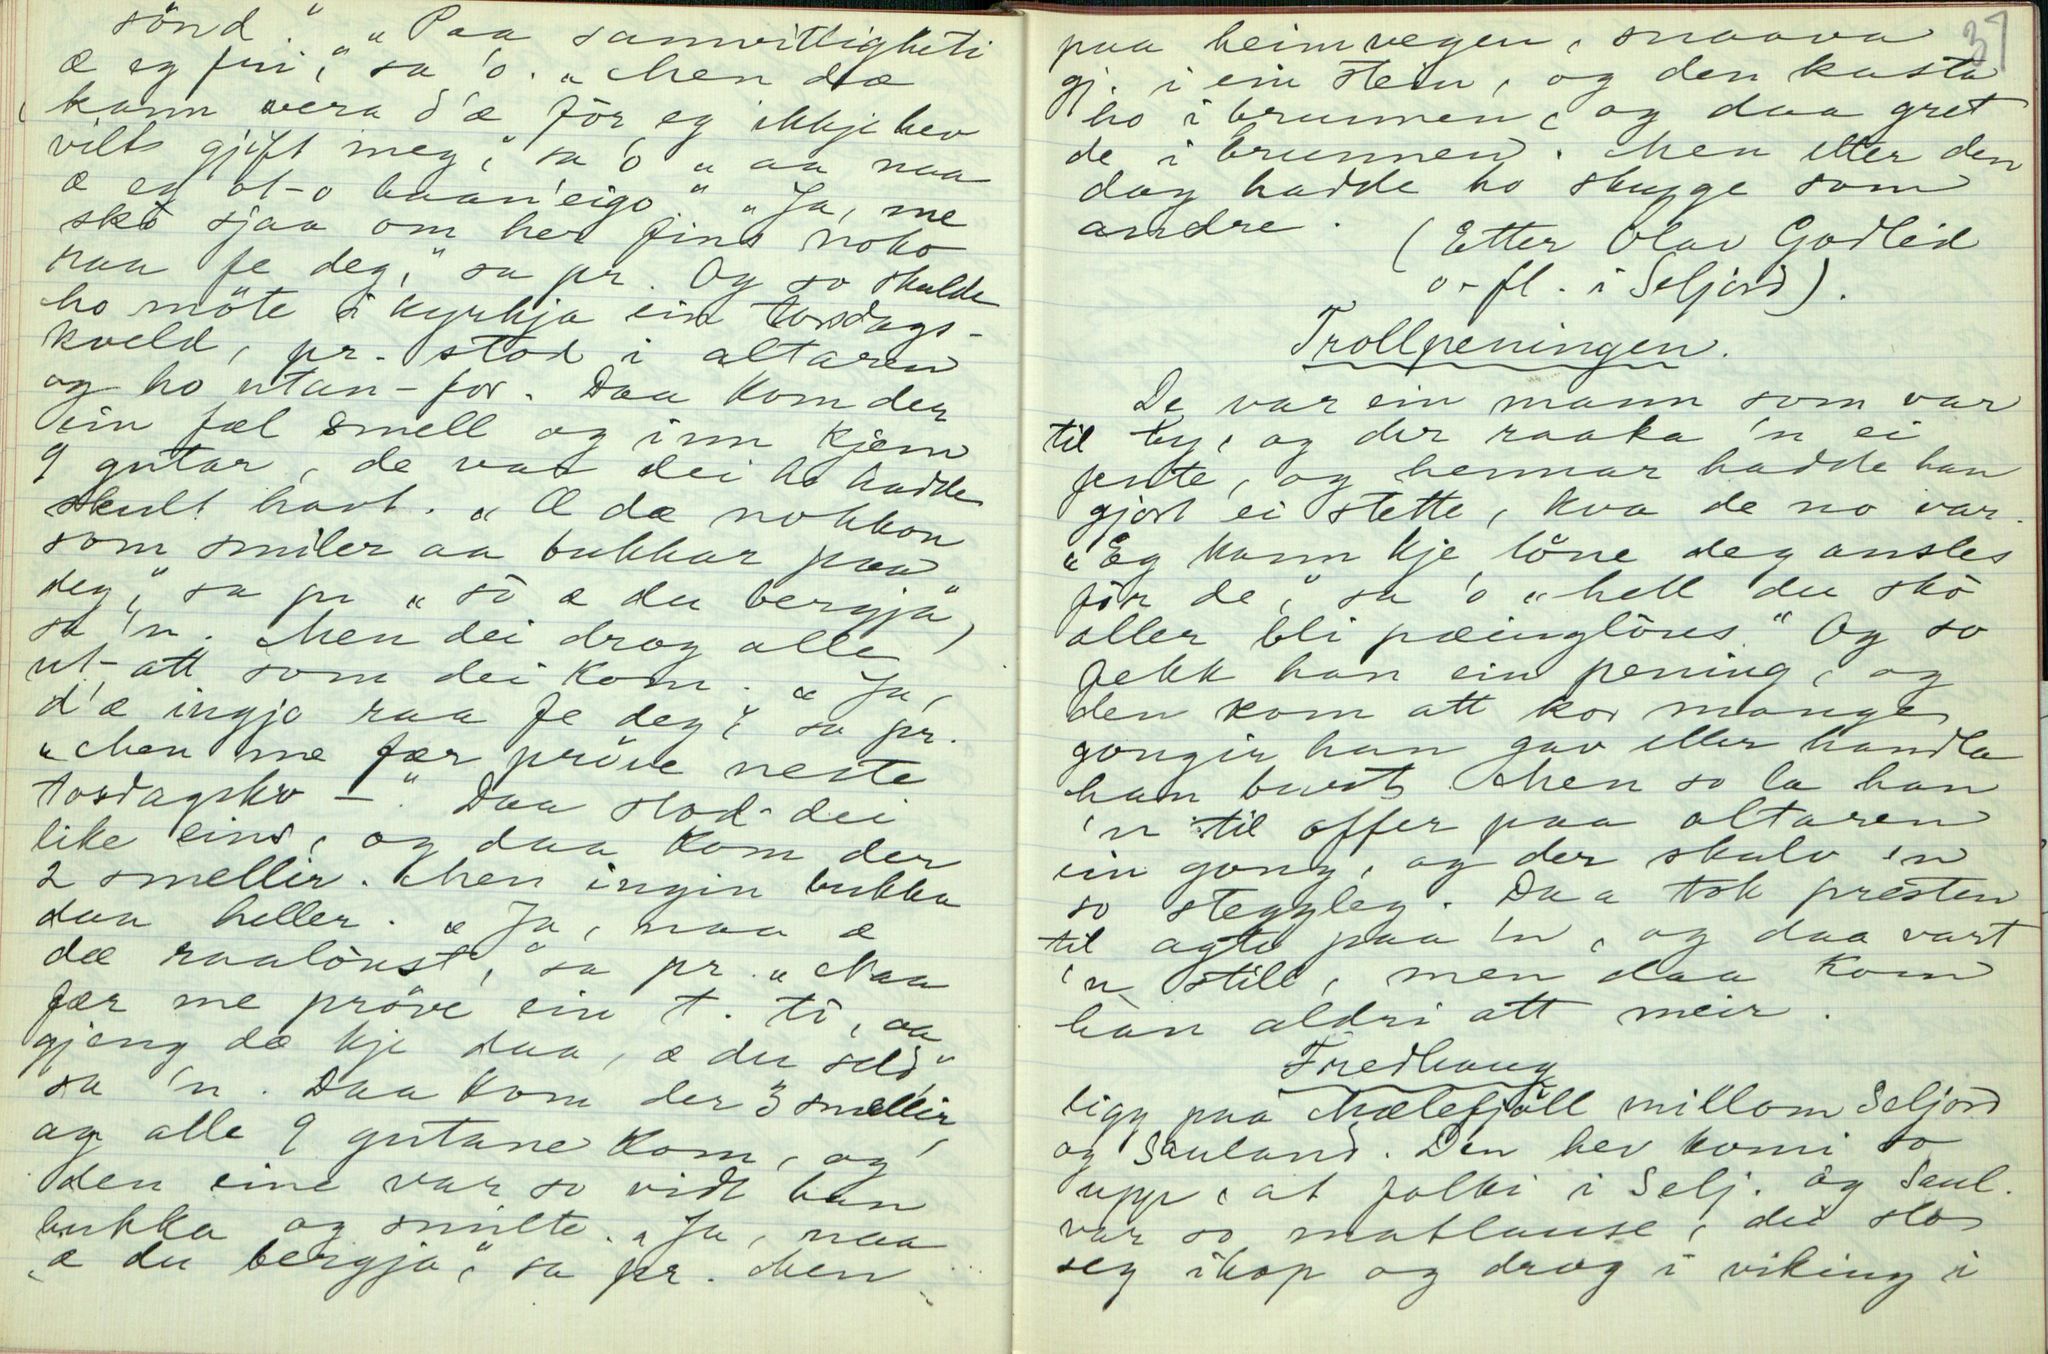 sönd." "Paa samvittigheti
æ eg fri," sa 'o. "Men dæ
kann vera d'æ för eg ikkje hev
vilt gjift meg," sa 'o "aa naa
æ eg ot-o baan'eigo" "Ja, me
sko sjaa om her fins noko
raa fe deg," sa pr. Og so skulde
ho möte i kyrkja ein torsdags-
kveld, pr. stod i altaren
og ho utan-for. Daa kom der
ein fæl smell og inn kjem
9 gutar, de var dei ho hadde
skult havt. "Æ dæ nokkon
som smiler aa bukkar paa
deg," sa pr "so æ du bergja",
sa 'n. Men dei drog alle
ut-att som dei kom. "Ja,
d'æ ingjo raa fe deg," sa pr.
"Men me fær pröve neste
torsdagskv –." Daa stod dei
like eins, og daa kom der
2 smellir. Men ingin bukka
daa heller. "Ja, naa æ
dæ raalöust," sa pr. "Naa
fær me pröve ein t. te, aa
gjeng dæ kje daa, æ du seld"
sa 'n. Daa kom der 3 smellir
og alle 9 gutane kom, og
den eine var so vidt han
bukka og smilte. "Ja, naa
æ du bergja," sa pr. Men
37
paa heimvegen, snaava
gj. i ein stein, og den kasta
ho i brunnen, og daa gret
de i brunnen. Men etter den
dag hadde ho skugge som
andre.
(Etter Olav Godlid
o. fl. i Seljord).
Trollpeningen.
De var ein mann som var
til by, og der raaka 'n ei
jente, og hennar hadde han
gjort ei stette, kva de no var.
"Eg kann kje löne deg ansles
för de," sa 'o "hell du sko
aller bli pæinglöus" Og so
fekk han ein pening, og
den kom att kor mange
gongir han gav eller handla
han burt. Men so la han
'n til offer paa altaren
ein gong, og der skalv 'n
so steggleg. Daa tok presten
til agte paa 'n, og daa vart
'n still, men daa kom
han aldri att meir.
Fredhaug
ligg paa Mælefjöll millom Seljord
og Sauland. Den hev komi so
upp, at folki i Selj. og Saul.
var so matlause, dei slo
seg ihop og drog i viking i